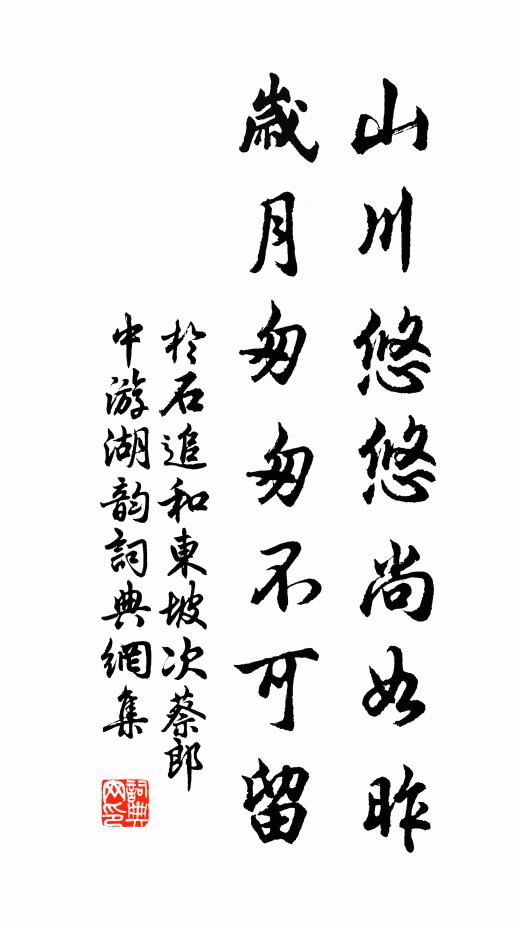 山川悠悠尚如昨
歲月匆匆不可留
於石追和東坡次蔡郎
中游湖韵詞典網集
詞典
网印